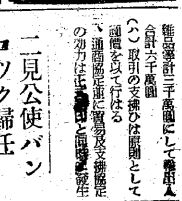 雜品等計三千萬圓にして輸出入
合計六千萬圓
(ハ)取引の支拂ひは原則として
圓價を以て行はる
、通商協定並に貿易及支拂協定
の効力は印と同時に發生
二見公使バン
コック歸任